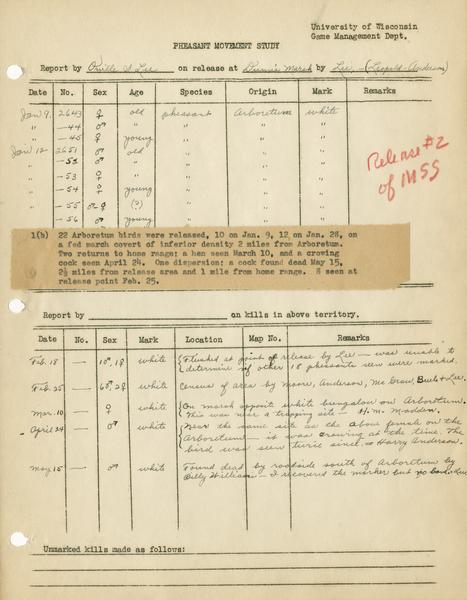 University of Wisconsin
Game Management Dept.
PHEASANT MOVEMENT STUDY
Report by Orville S Lee on release at Dunn's Marsh by Lee - (Leopold-Anderson)
Date No. Sex Age Species Origin Mark Remarks
Jan 9. 2643 ♀ old pheasant Arboretum white
" -44 ♂ " " " "
" -45 ♀ young " " "
Jan 12 2651 ♂ old " " "
" -52 ♂ " " " "
" -53 ♀ " " " "
" -54 ♀ young " " "
" -55 ♀ (?) " " "
" -56 ♂ young " " "
Release #2
of MSS
1(b) 22 Arboretum birds were released, 10 on Jan. 9, 12 on Jan. 28, on
a fed marsh covert of inferior density 2 miles from Arboretum.
Two returns to home range: a hen seen March 10, and a crowing
cock seen April 24. One dispersion: a cock found dead May 15,
2½ miles from release area and 1 mile from home range. 8 seen at
release point Feb. 25.
Report by on kills in above territory.
Date No. Sex Mark Location Map No. Remarks
Feb. 18 — 10♂, 1♀ white Flushed at point of release by Lee — was unable to
determine if other 18 pheasants seen were marked.
Feb. 25 — 6♂, 2♀ white Census of area by Moore, Anderson, Mc Graw, Buch & Lee.
Mar. 10 — ♀ white On marsh opposite white bungalow on Arboretum.
This was near a trapping site — H. M. Madden.
April 24 — ♂ white Near the same site as the above female on the
Arboretum — it was crowing at the time. The
bird was seen twice since. Harry Anderson.
May 15 — ♂ white Found dead by roadside south of Arboretum by
Billy Williams — I recovered the marker but no band. Lee
Unmarked kills made as follows: